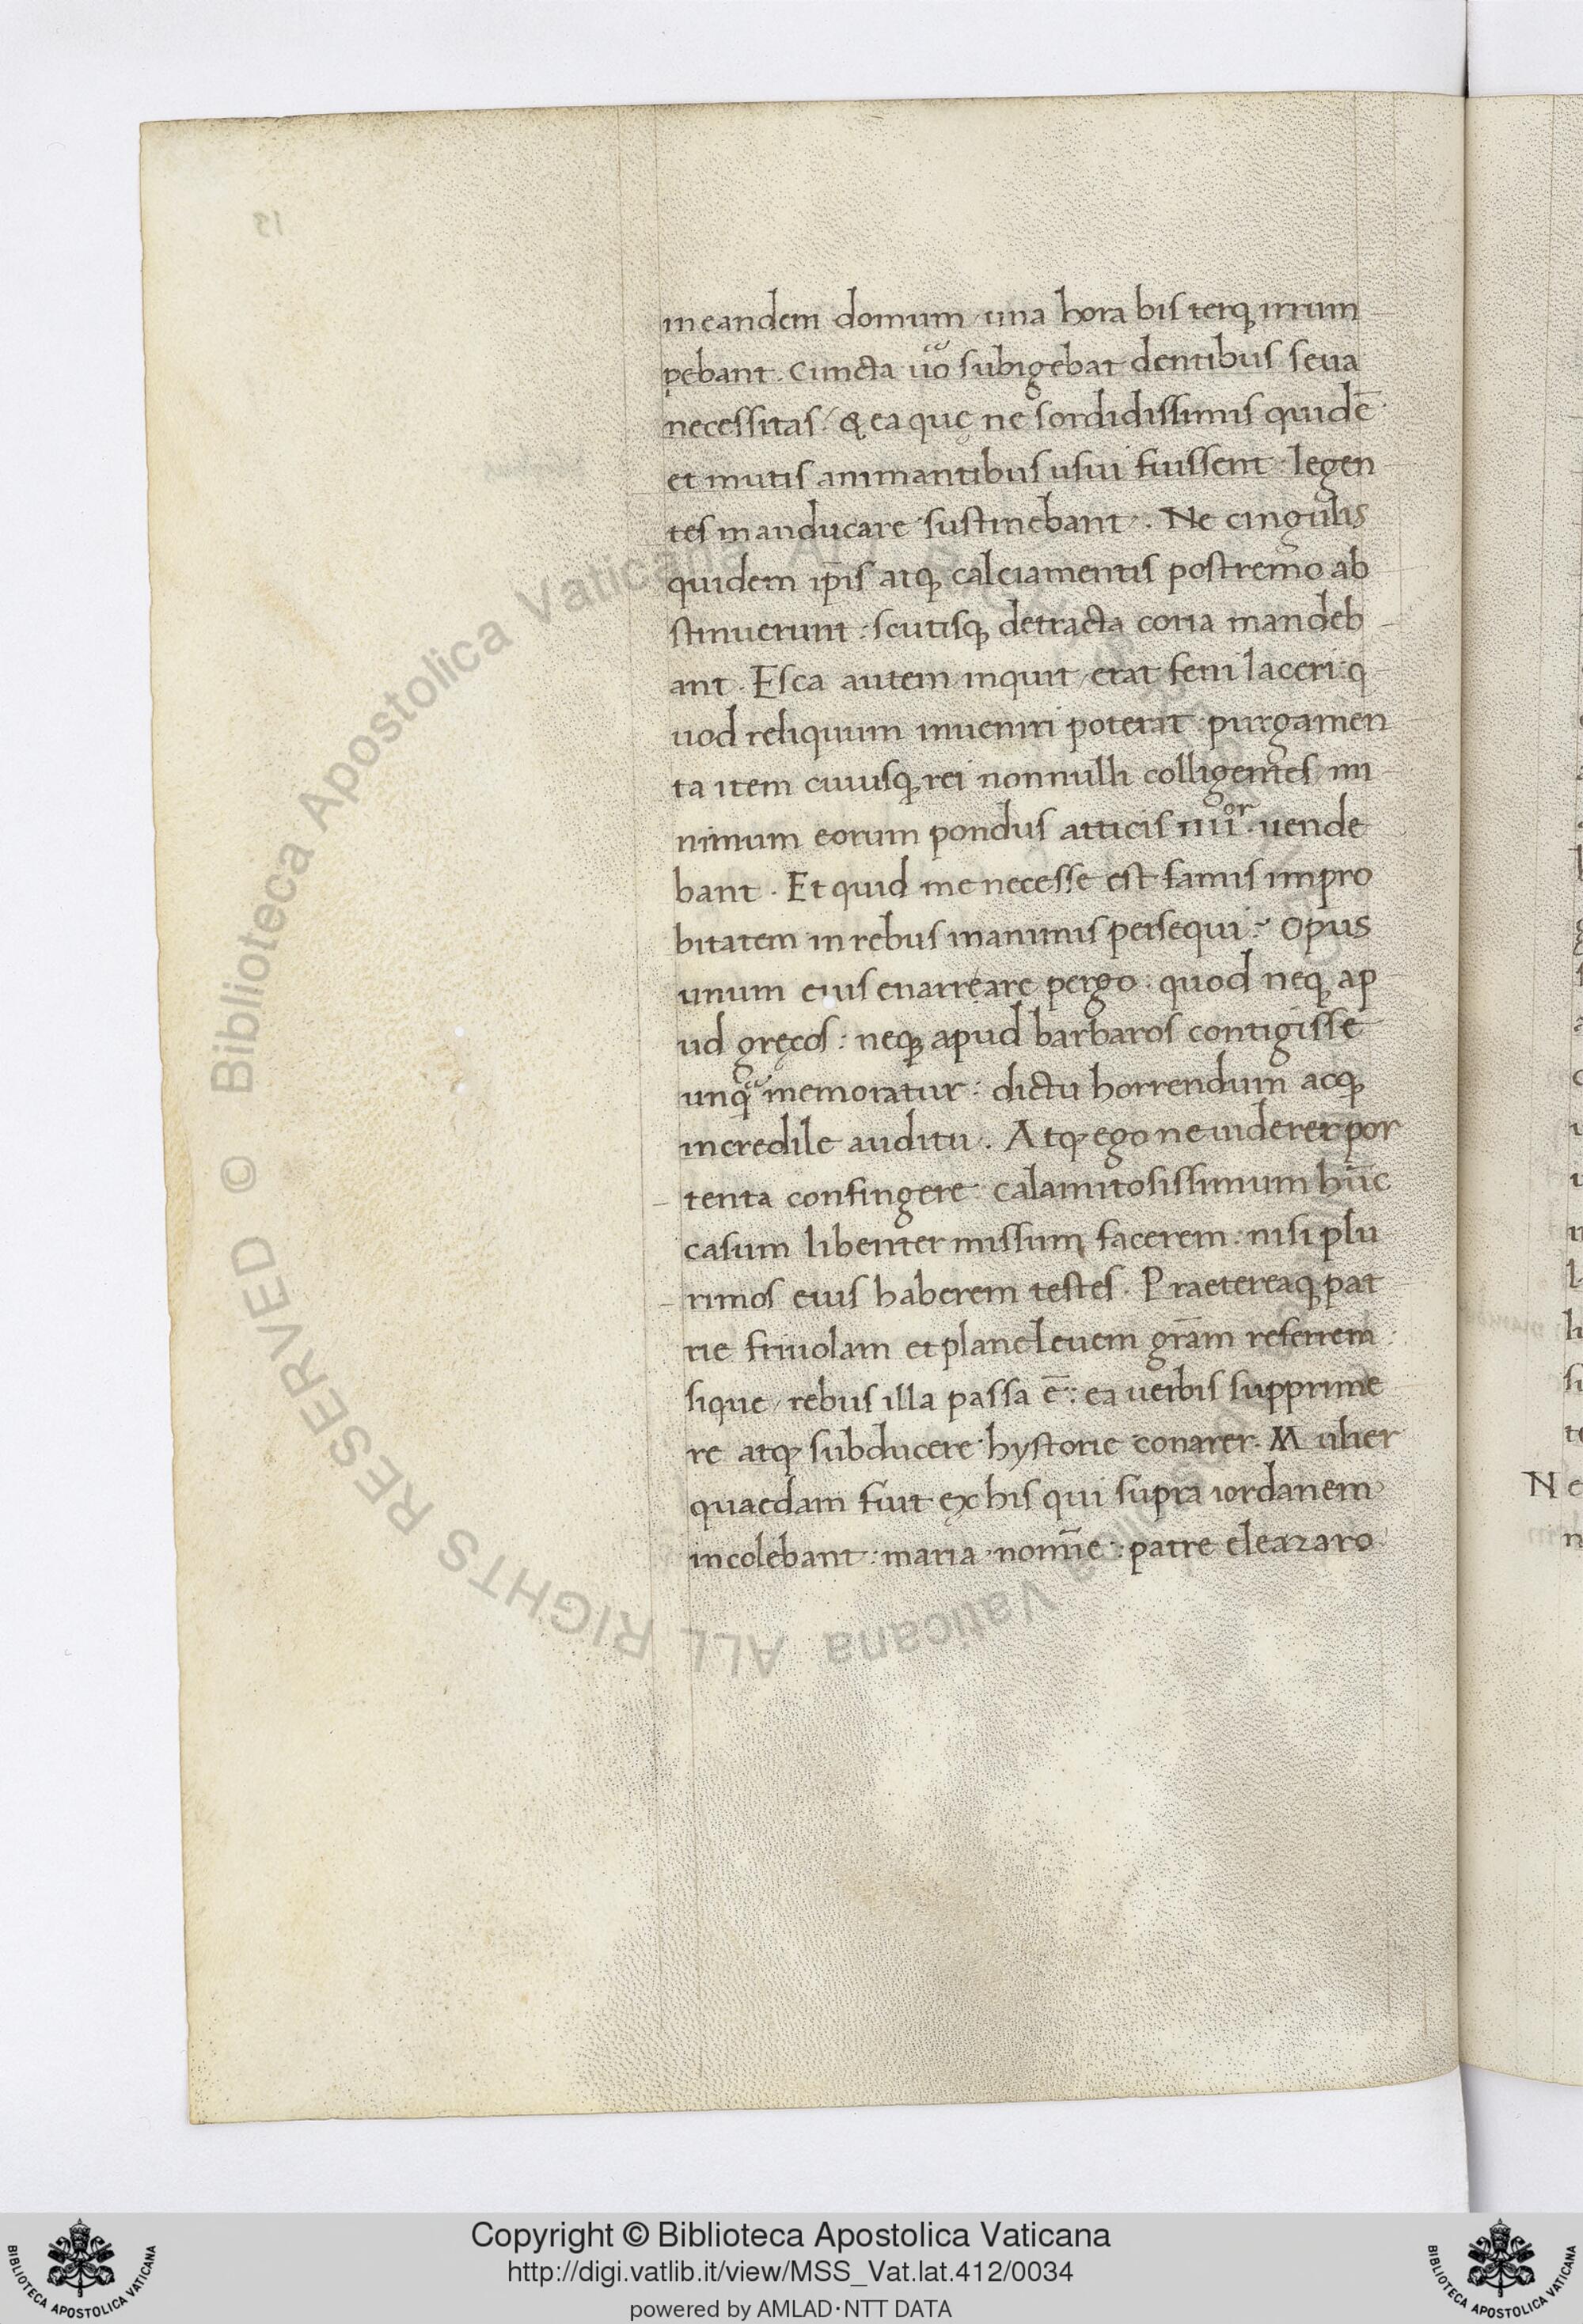 in eandem domum una hora bis terq; irrum
pebant. Cuncta uo subigebat dentibus seua
necessitas / & ea quę ne sordidissimis quidē
et mutis animantibus usui fuissent: legen
tes manducare sustinebant. Ne cingulis
quidem ip̄is atq; calciamentis postremo ab
stinuerunt: scutisq; detracta coria mandeb
ant. Esca autem inquit / erat feni laceri q
uod reliquum inueniri poterat: purgamen
ta item cuiusq; rei nonnulli colligentes / mi
nimum eorum pondus atticis iiiior. uende
bant. Et quid me necesse est famis impro
bitatem in rebus inanimis persequi? Opus
unum eius enarreare pergo: quod neq; ap
ud gręcos: neq; apud barbaros contigisse
unqᵃ memoratur: dictu horrendum acq;
incredile auditu. Atq; ego ne uiderer por
tenta confingere: calamitosissimum hūc
casum libenter missum facerem: nisi plu
rimos eius haberem testes. Praetereaq; pat
rie friuolam et plane leuem grām referrem
sique / rebus illa passa ē: ea uerbis supprime
re atq; subducere hystorie conarer. Mulier
quaedam fuit ex his qui supra iordanem
incolebant: maria nomīe: patre eleazaro
Biblioteca Apostolica Vaticana
ALL RIGHTS RESERVED ©
Copyright © Biblioteca Apostolica Vaticana
http://digi.vatlib.it/view/MSS_Vat.lat.412/0034
powered by AMLAD·NTT DATA
BIBLIOTECA APOSTOLICA VATICANA
BIBLIOTECA APOSTOLICA VATICANA